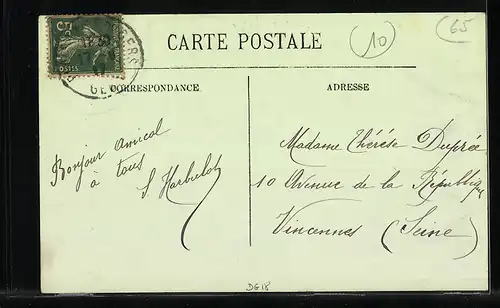 5c
POSTES
GE
CARTE POSTALE
10
65
CORRESPONDANCE
ADRESSE
Bonjour amical
à tous
S. Harbulot
Madame Thérése Duprée
10 Avenue de la République
Vincennes (Seine)
DG18